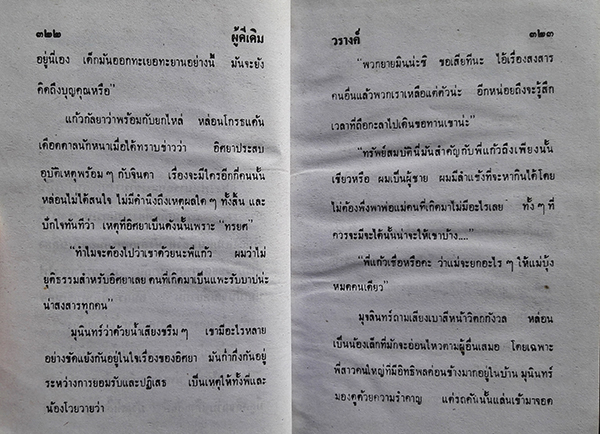 ๓๒๒ ผู้ดีเดิม
อยู่นี่เอง เด็กมันออกทะเยอทะยานอย่างนี้ มันจะยัง
คิดถึงบุญคุณหรือ”
แก้วกัลยาว่าพร้อมกับยกไหล่ หล่อนโกรธแค้น
เดือดดาลนักหนาเมื่อได้ทราบข่าวว่า อิศยาประสบ
อุบัติเหตุพร้อม ๆ กับจินดา เรื่องจะมีใครอีกกี่คนนั้น
หล่อนไม่ได้สนใจ ไม่มีคำนึงถึงเหตุผลใด ๆ ทั้งสิ้น และ
ปักใจทันทีว่า เหตุที่อิศยาเป็นดังนั้นเพราะ “ทรยศ”
“ทำไมจะต้องไปว่าเขาด้วยนะพี่แก้ว ผมว่าไม่
ยุติธรรมสำหรับอิศยาเลย คนที่เกิดมาเป็นแพะรับบาปน่ะ
น่าสงสารทุกคน”
มุนินทร์ว่าด้วยน้ำเสียงขรึม ๆ เขามีอะไรหลาย
อย่างขัดแย้งกันอยู่ในใจเรื่องของอิศยา มันก้ำกึ่งกันอยู่
ระหว่างการยอมรับและปฏิเสธ เป็นเหตุให้ทั้งพี่และ
น้องโวยวายว่า
วรางค์ ๓๒๓
“พวกยายมินน่ะซิ ขอเสียทีนะ ไอ้เรื่องสงสาร
คนอื่นแล้วพวกเราเหลือแต่ตัวน่ะ อีกหน่อยถึงจะรู้สึก
เวลาที่ถือกะลาไปเดินขอทานเขาน่ะ”
“ทรัพย์สมบัตินี่มันสำคัญกับพี่แก้วถึงเพียงนั้น
เชียวหรือ ผมเป็นผู้ชาย ผมมีลำแข้งที่จะหากินได้โดย
ไม่ต้องพึ่งพาพ่อแม่คนที่เกิดมาไม่มีอะไรเลย ทั้ง ๆ ที่
ควรจะมีจะได้นั้นน่าจะให้เขาบ้าง....”
“พี่แก้วเชื่อหรือคะ ว่าแม่จะยกอะไร ๆ ให้แม่บุ้ง
หมดคนเดียว”
มุจลินทร์ถามเสียงเบาสีหน้าวิตกกังวล หล่อน
เป็นน้องเล็กที่มักจะอ่อนไหวตามผู้อื่นเสมอ โดยเฉพาะ
พี่สาวคนใหญ่ที่มีอิทธิพลค่อนข้างมากอยู่ในบ้าน มุนินทร์
มองดูด้วยความรำคาญ แต่รถคันนั้นแล่นเข้ามาจอด